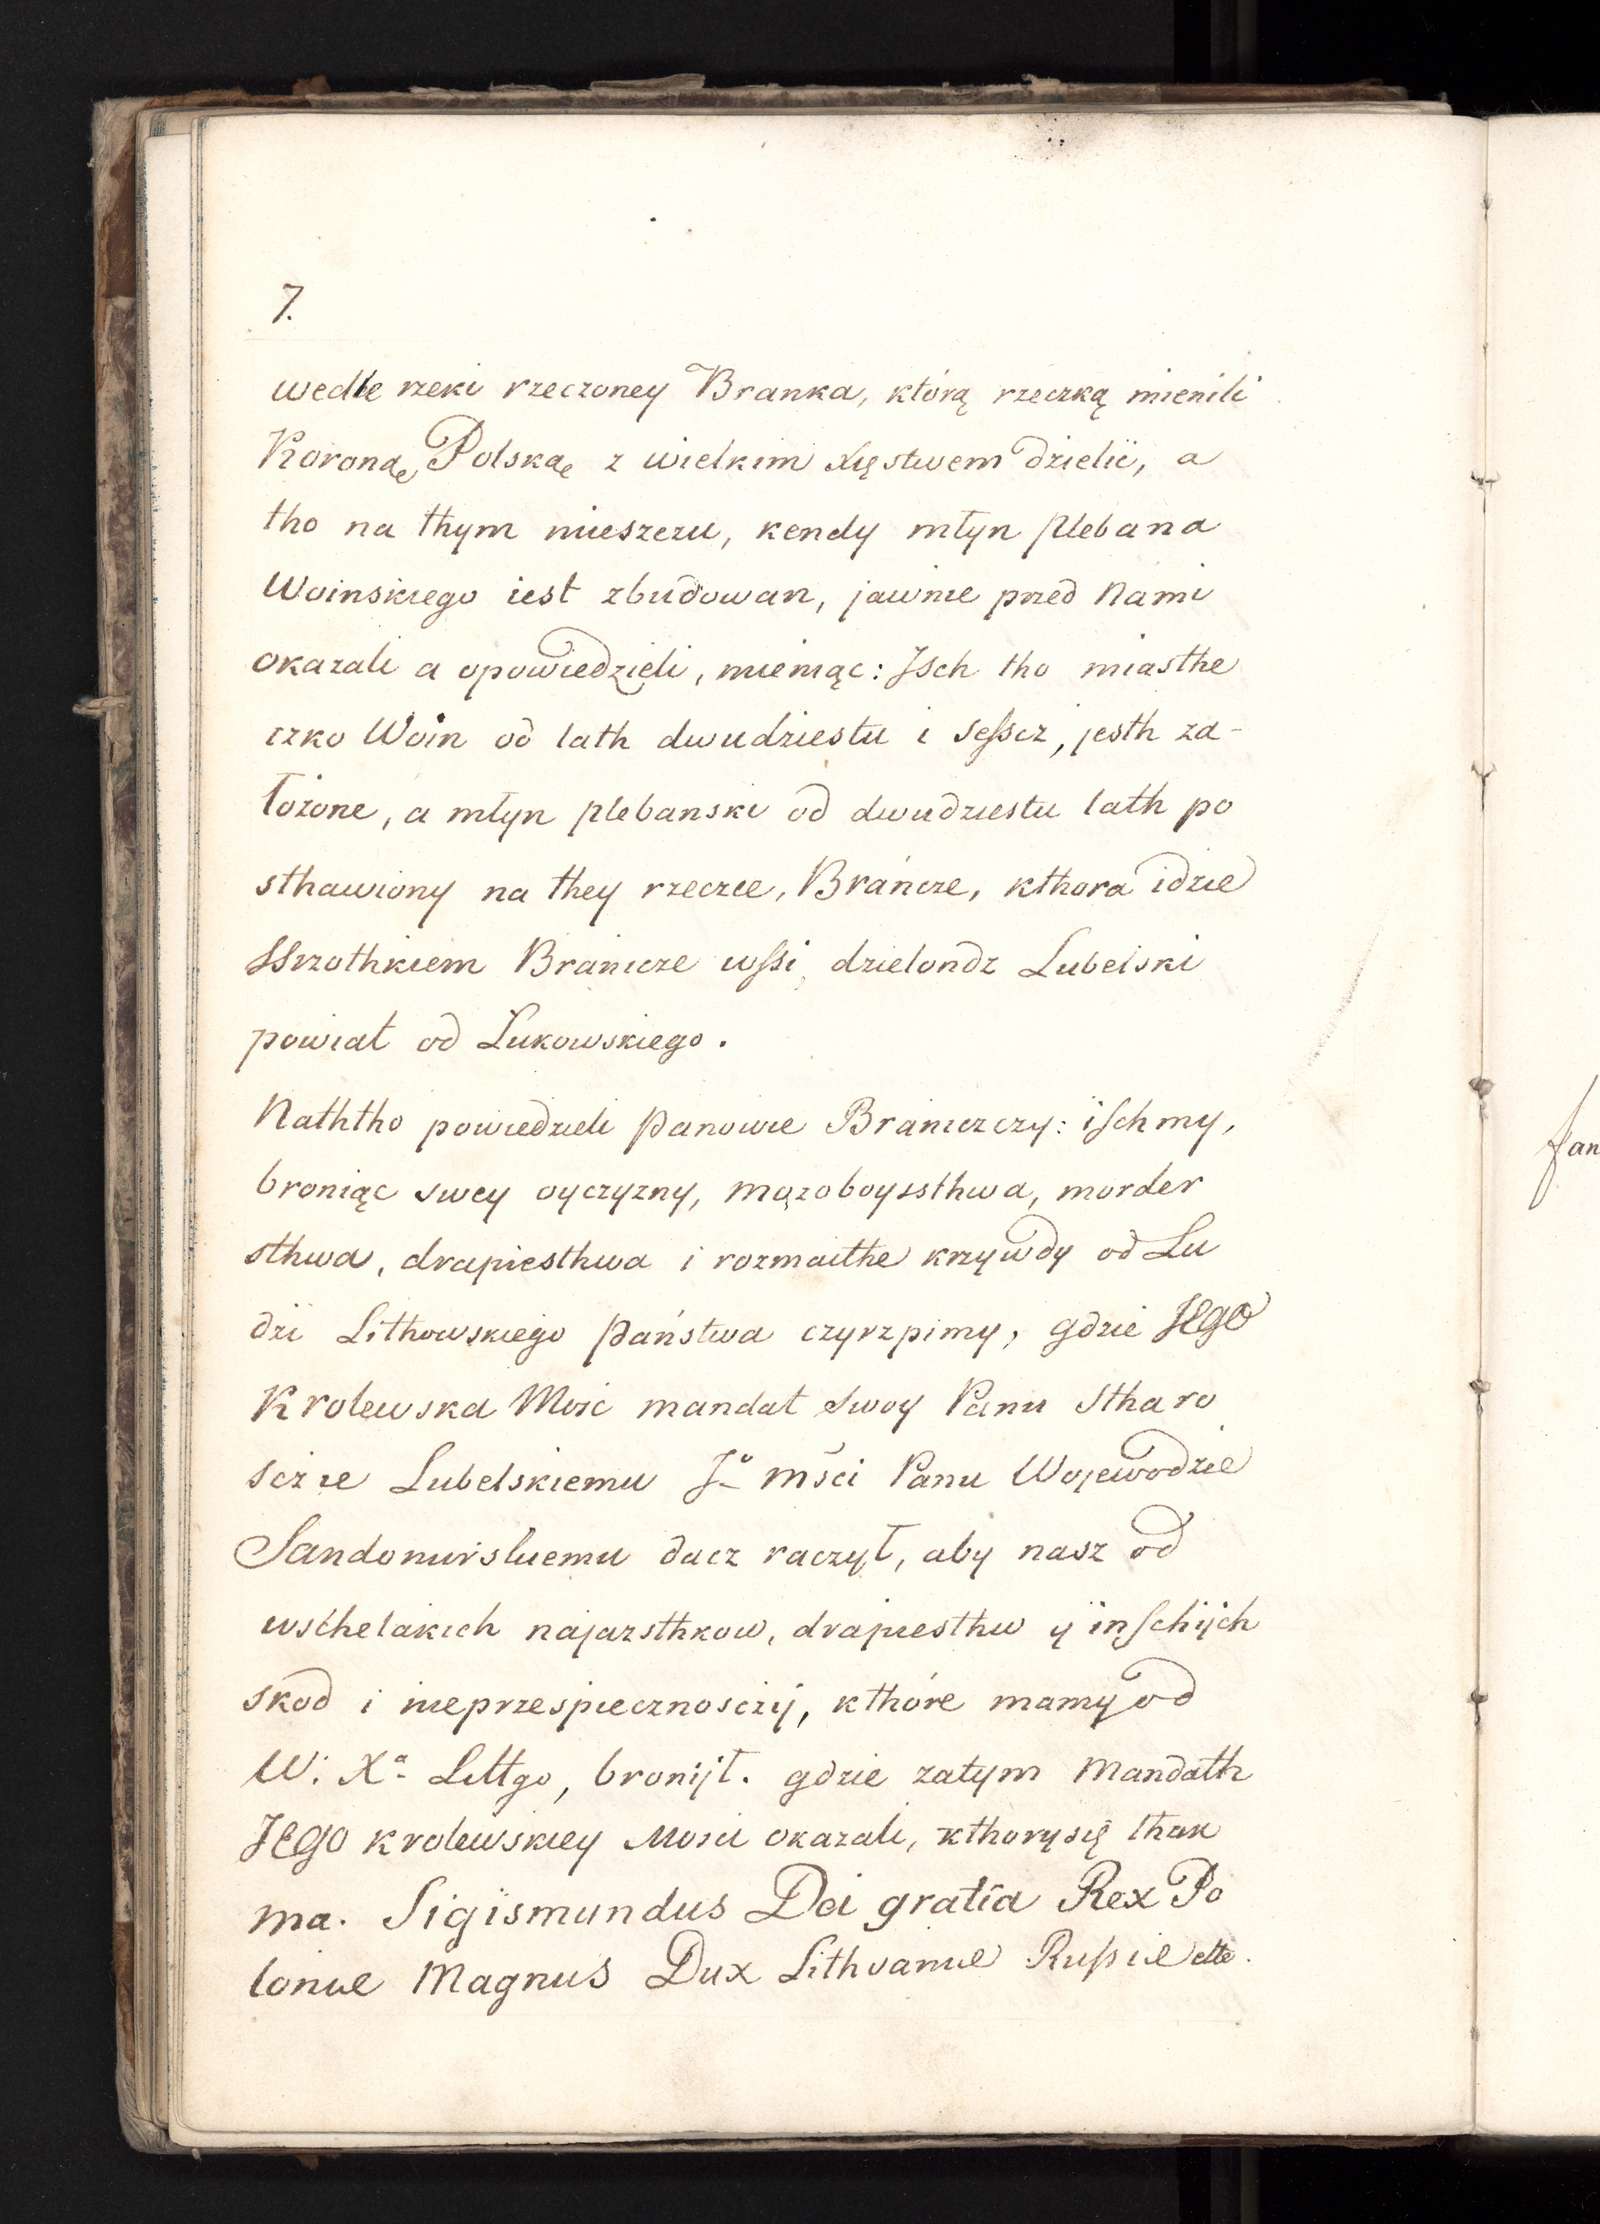 7.
wedle rzeki rzeczoney Branka, którą rzeczką mienili
Koronąe Polskąe z wielkim Xięstwem dzielić, a
tho na thym mieszczu, kendy młyn plebana
Woinskiego iest zbudowan, jawnie przed Nami
okazali a opowiedzieli, mieniąc: Isch tho miasthe
czko Woin od lath dwudziestu i seſscz, jesth za-
łożone, a młyn plebanski od dwudziestu lath po
sthawiony na they rzeczce, Bráncze, kthora idzie
SSrzothkiem Branicze wſsi, dzielondz Lubelski
powiat od Lukowskiego.
Naththo powiedzieli Panowie Braniczczy: iſchmy,
broniąc swey oyczyzny, mązoboyssthwa, morder
sthwa, drapiesthwa i rozmaithe krzywdy od Lu
dzi Lithowskiego Państwa czyrzpimy, gdzie JEGO
Krolewska Mosc mandat swoy Panu Stharo
scżie Lubelskiemu Jº mści Panu Wojewodzie
Sandomirskiemu dacz raczył, aby nasz od
wschelakich najazsthkow, drapiesthw ÿ inſchijch
skod i nieprzespiecznosczij, kthóre mamy od
W. Xª Littgo, bronijł. gdzie zatym Mandath
JEGO krolewskiey Mosci okazali, kthory się thak
ma. Sigismundus Dei gratia Rex Po
loniae Magnus Dux Lithvaniae Rußiae ette.
fan